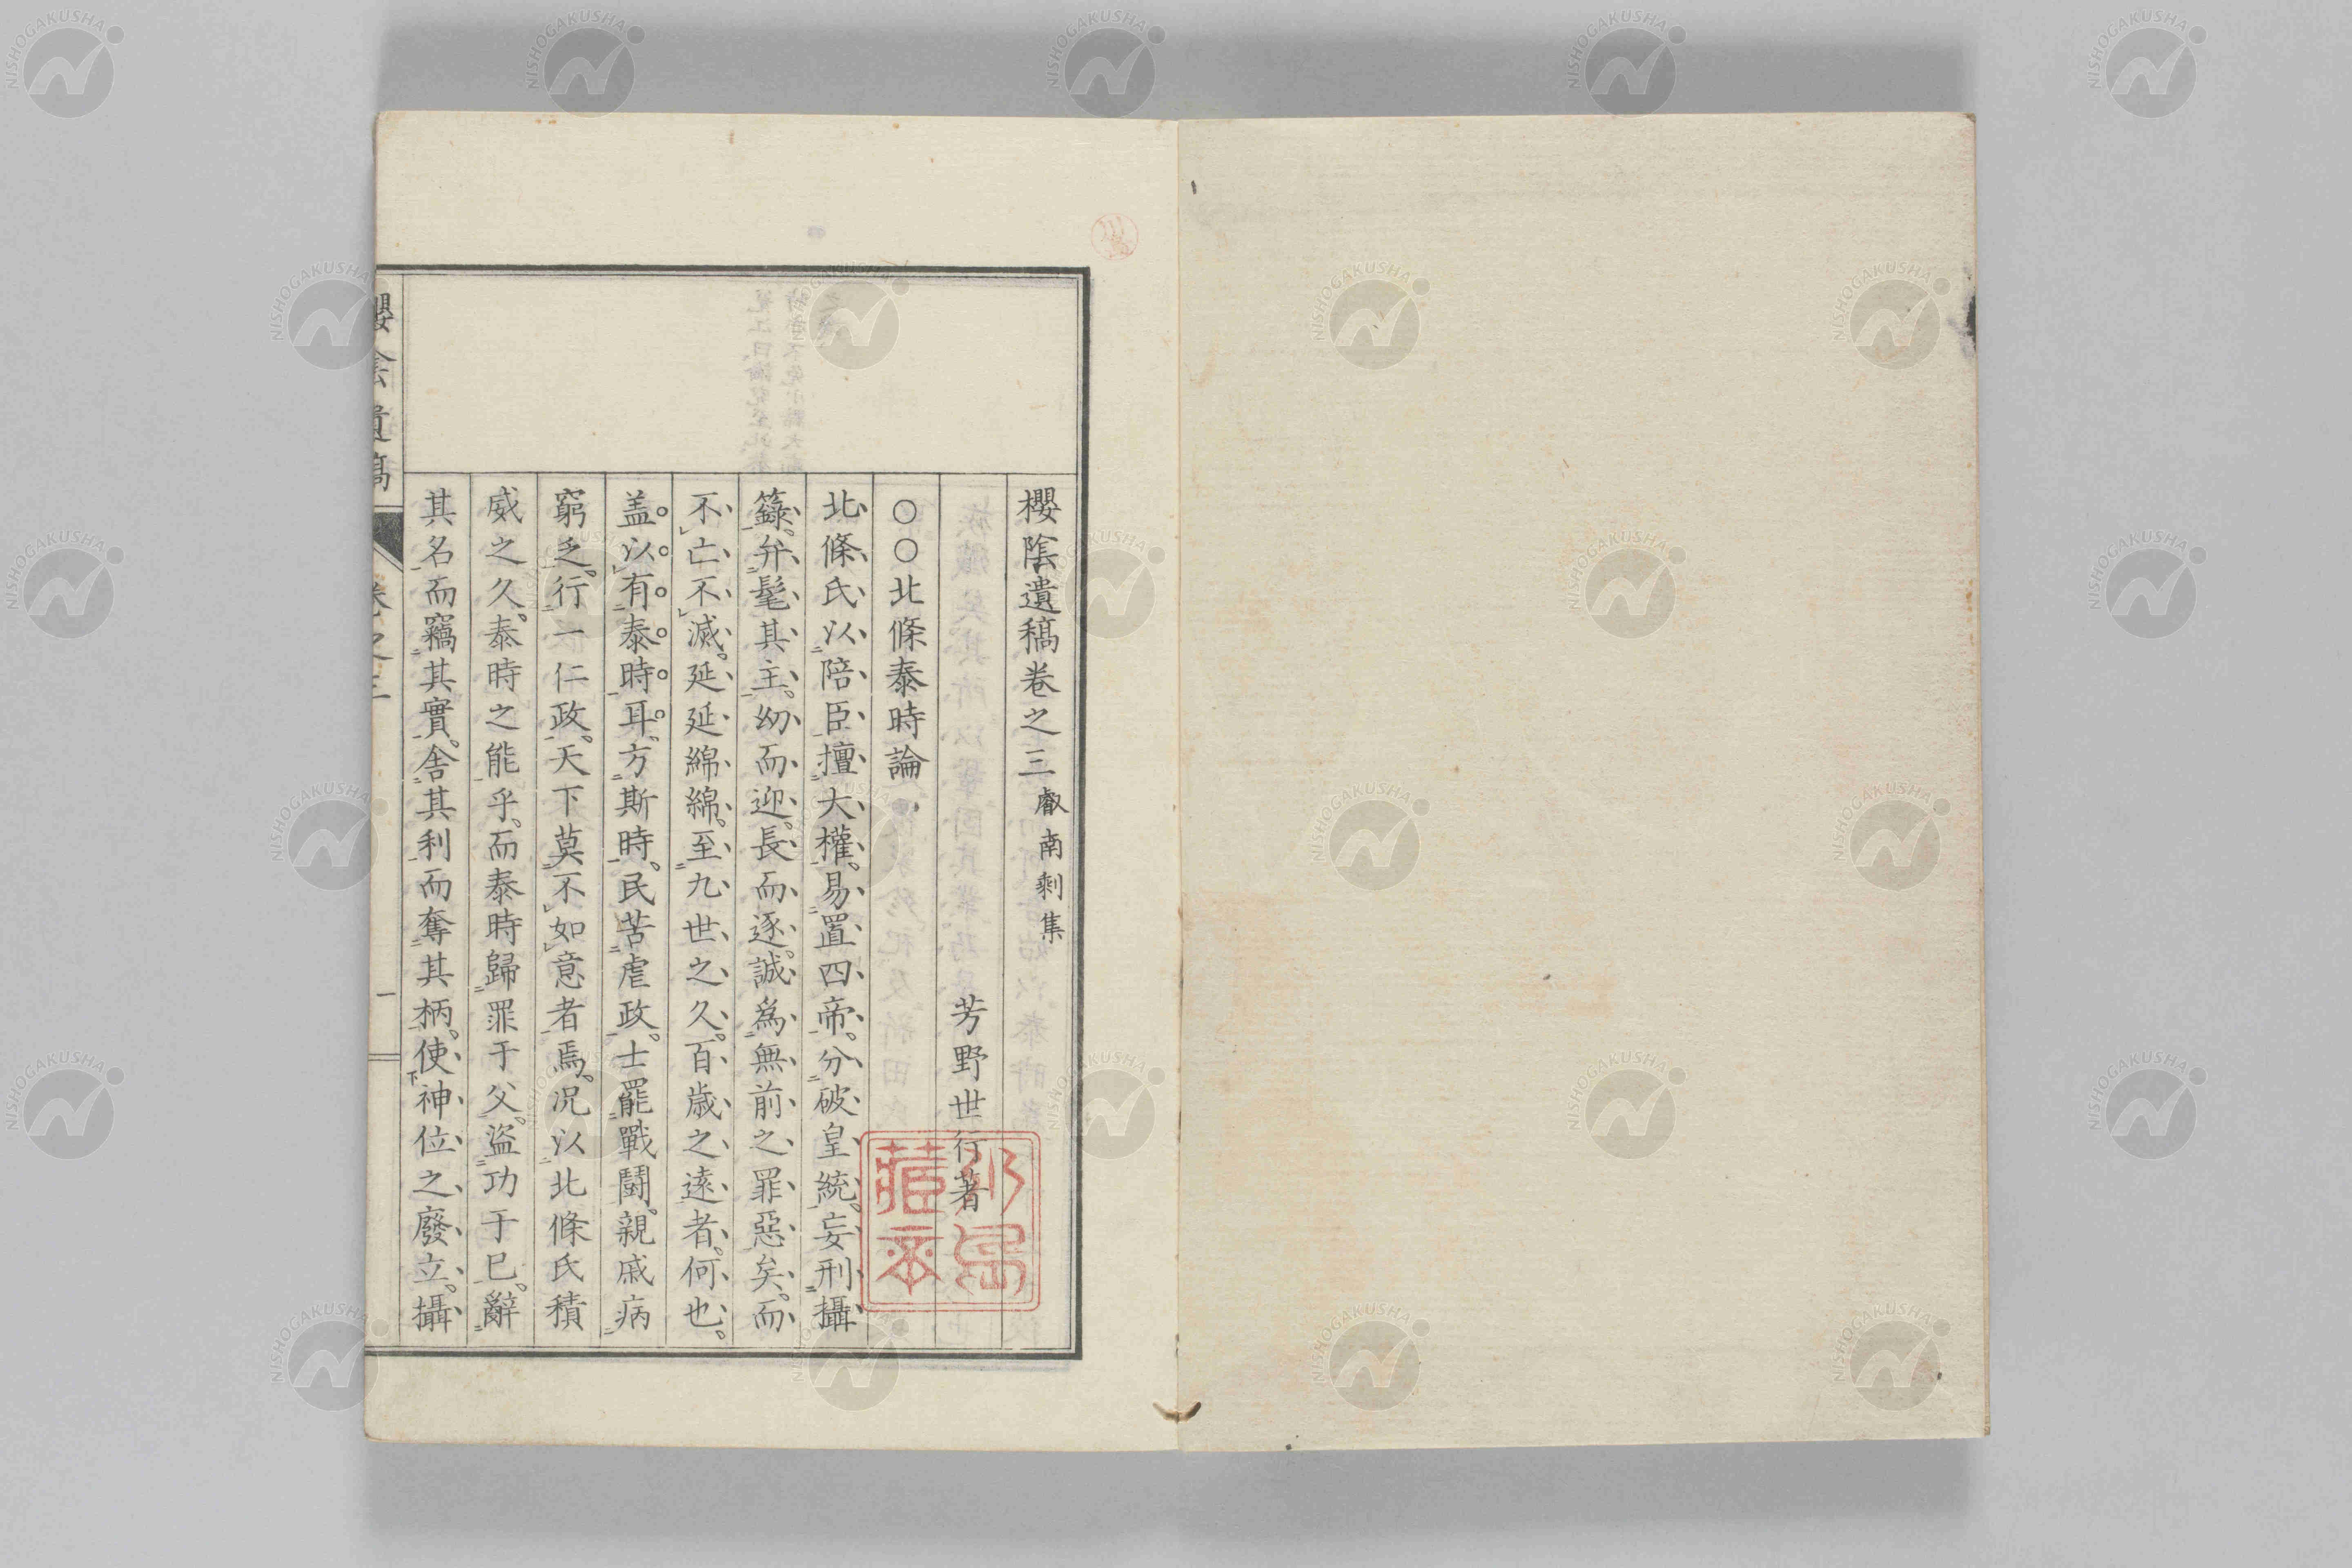 櫻陰遺稿卷之三 叡南剩集
芳野世行著
○○北條泰時論
北條氏以陪臣擅大權。易置四帝。分破皇統。妄刑攝
籙。弁髦其主。幼而迎。長而逐。誠爲無前之罪惡矣。而
不亡不滅。延延綿綿。至九世之久。百歲之遠者。何也。
盖以有泰時耳。方斯時。民苦虐政。士罷戰鬪。親戚病
窮乏。行一仁政。天下莫不如意者焉。況以北條氏積
威之久。泰時之能乎。而泰時歸罪于父。盜功于已。辭
其名而竊其實。舍其利而奪其柄。使神位之廢立。攝
櫻陰遺稿 卷之三 一
NISHOGAKUSHA